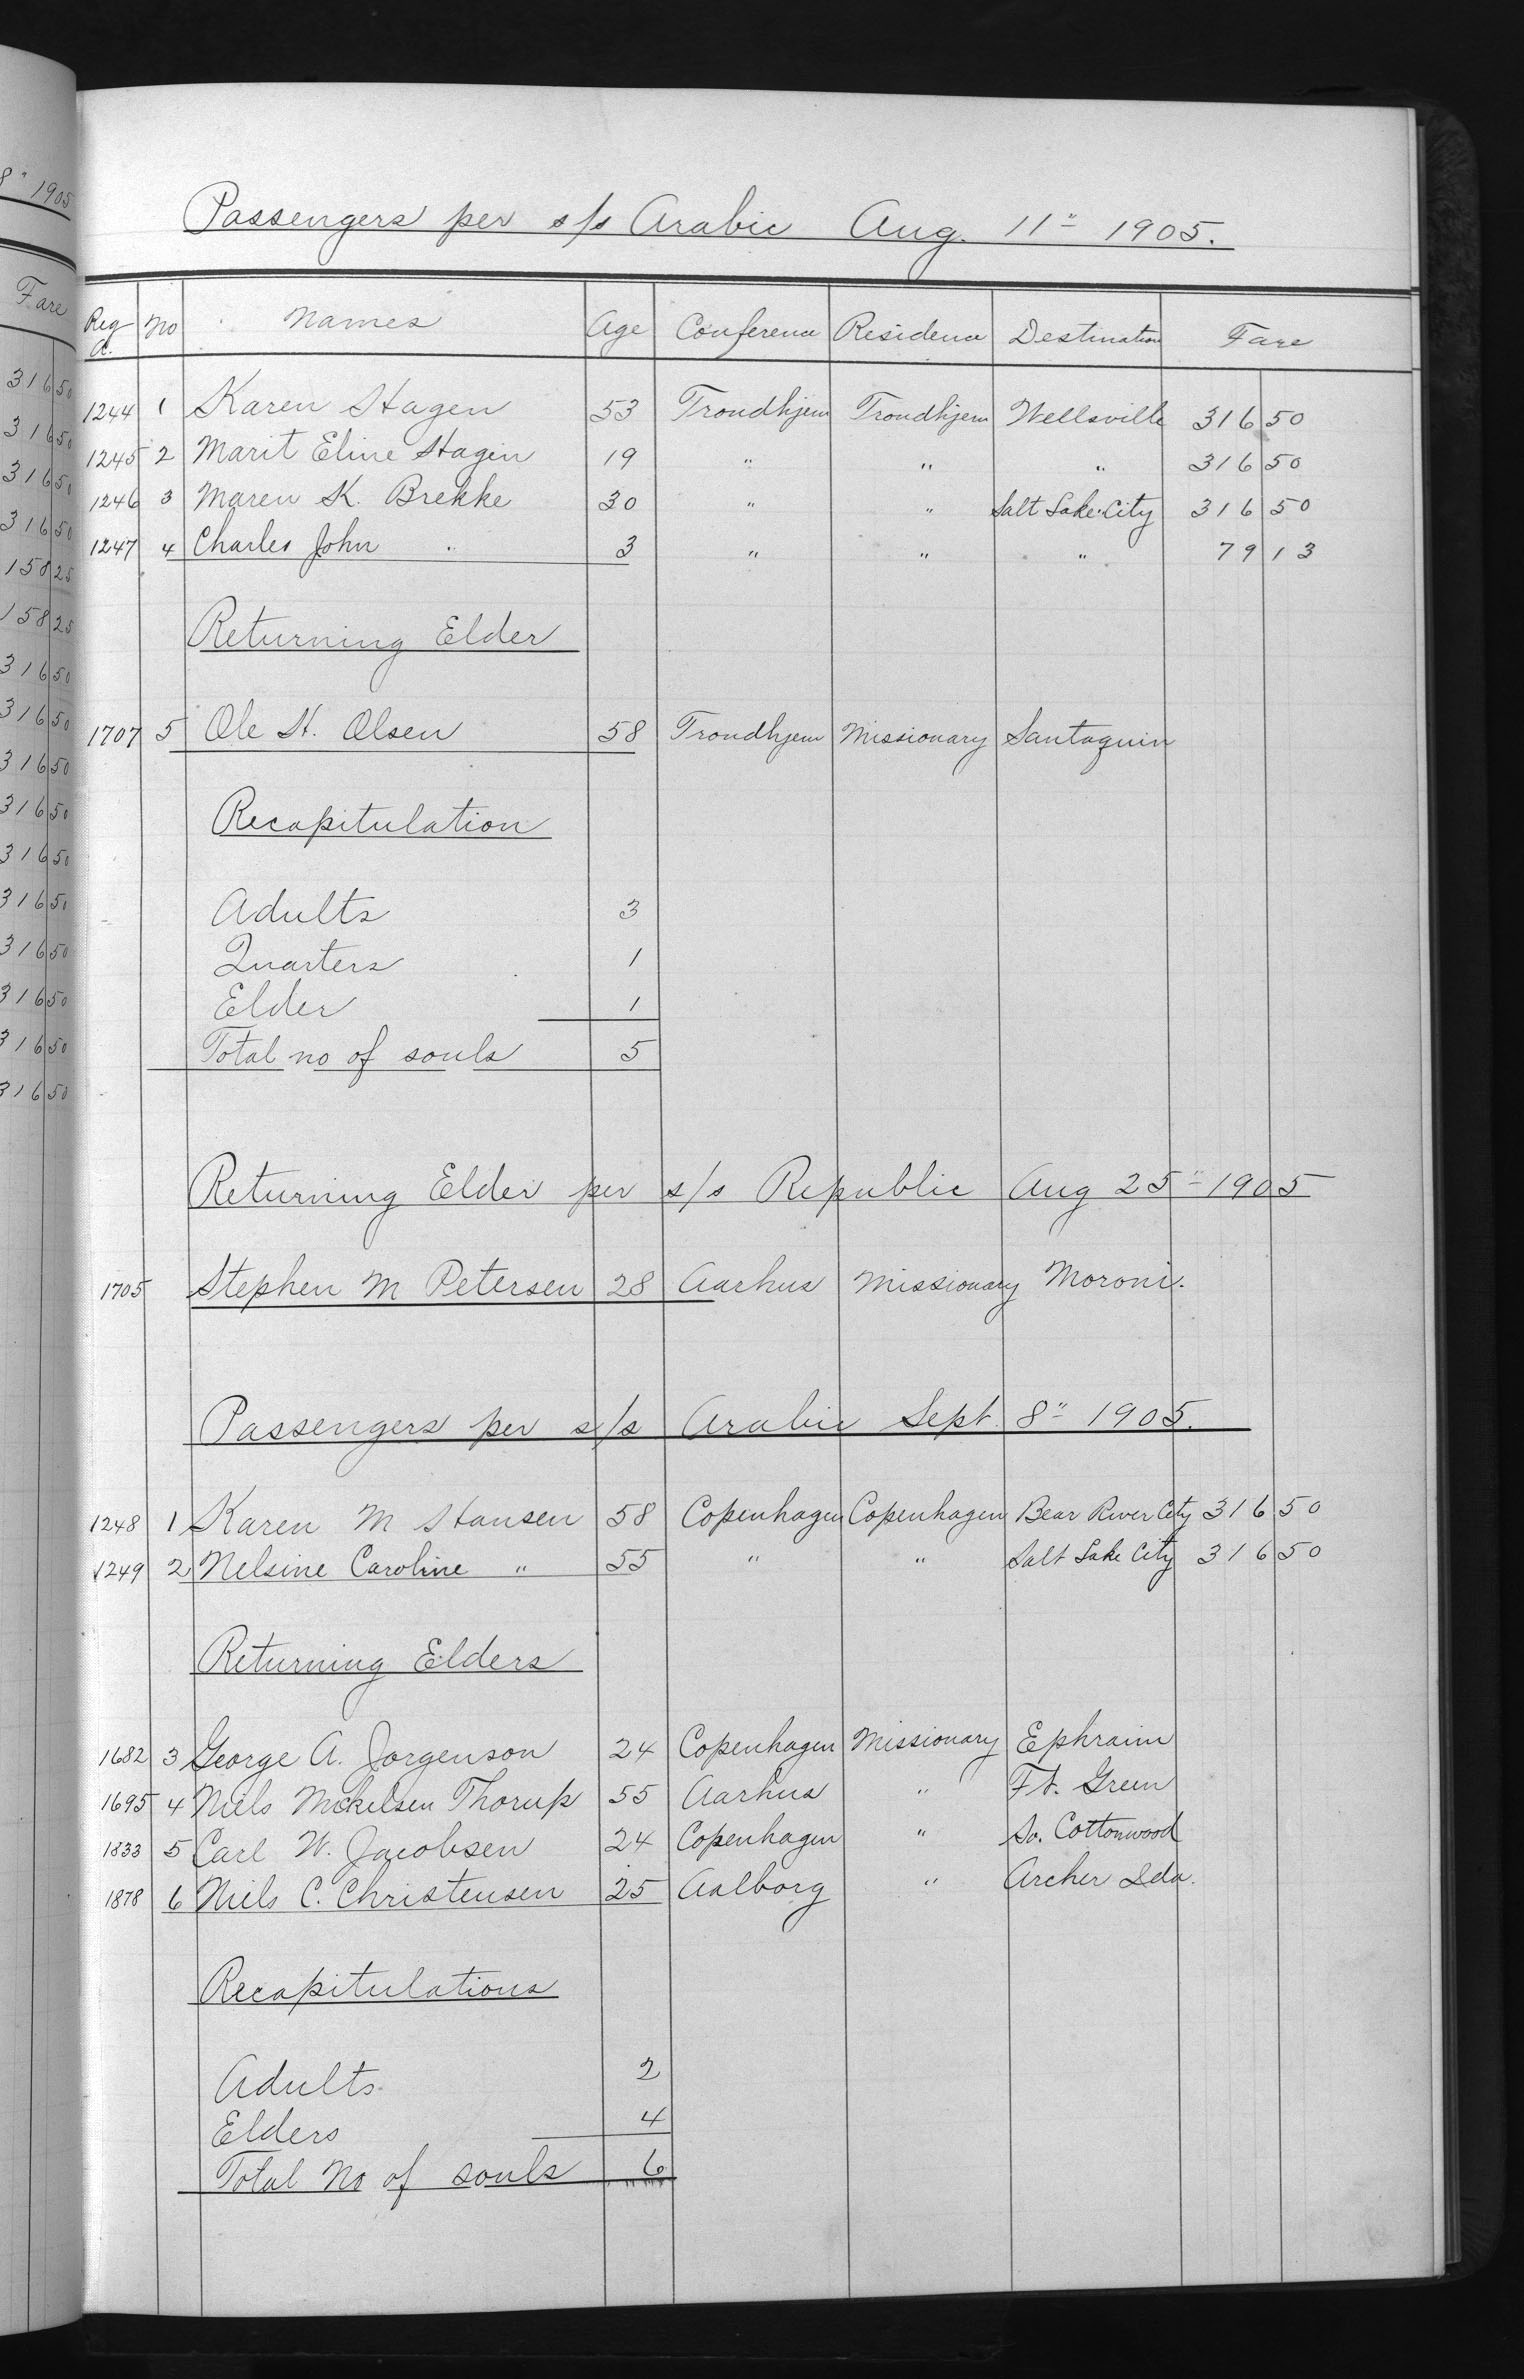 8" 1905
Fare
316 50
316 50
316 50
316 50
158 25
158 25
316 50
316 50
316 50
316 50
316 50
316 50
316 50
316 50
316 50
316 50
Passengers per s/s Arabic Aug. 11" 1905.
Reg No Names Age Conference Residence Destination Fare
1244 1 Karen Hagen 53 Trondhjem Trondhjem Wellsville 316 50
1245 2 Marit Eline Hagen 19 " " " 316 50
1246 3 Maren K. Brekke 30 " " Salt Lake City 316 50
1247 4 Charles John " 3 " " " 79 13
Returning Elder
1707 5 Ole H. Olsen 58 Trondhjem Missionary Santaquin
Recapitulation
Adults 3
Quarters 1
Elder 1
Total no of souls 5
Returning Elder per s/s Republic Aug 25" 1905
1705 Stephen M Petersen 28 Aarhus Missionary Moroni.
Passengers per s/s Arabic Sept. 8" 1905.
1248 1 Karen M Hansen 58 Copenhagen Copenhagen Bear River City 316 50
1249 2 Nelsine Caroline " 55 " " Salt Lake City 316 50
Returning Elders
1682 3 George A. Jorgenson 24 Copenhagen Missionary Ephraim
1695 4 Niels Mickelsen Thorup 55 Aarhus " Ft. Green
1833 5 Carl W. Jacobsen 24 Copenhagen " So. Cottonwood
1878 6 Niels C. Christensen 25 Aalborg " Archer Ida.
Recapitulations
Adults. 2
Elders 4
Total No of souls 6